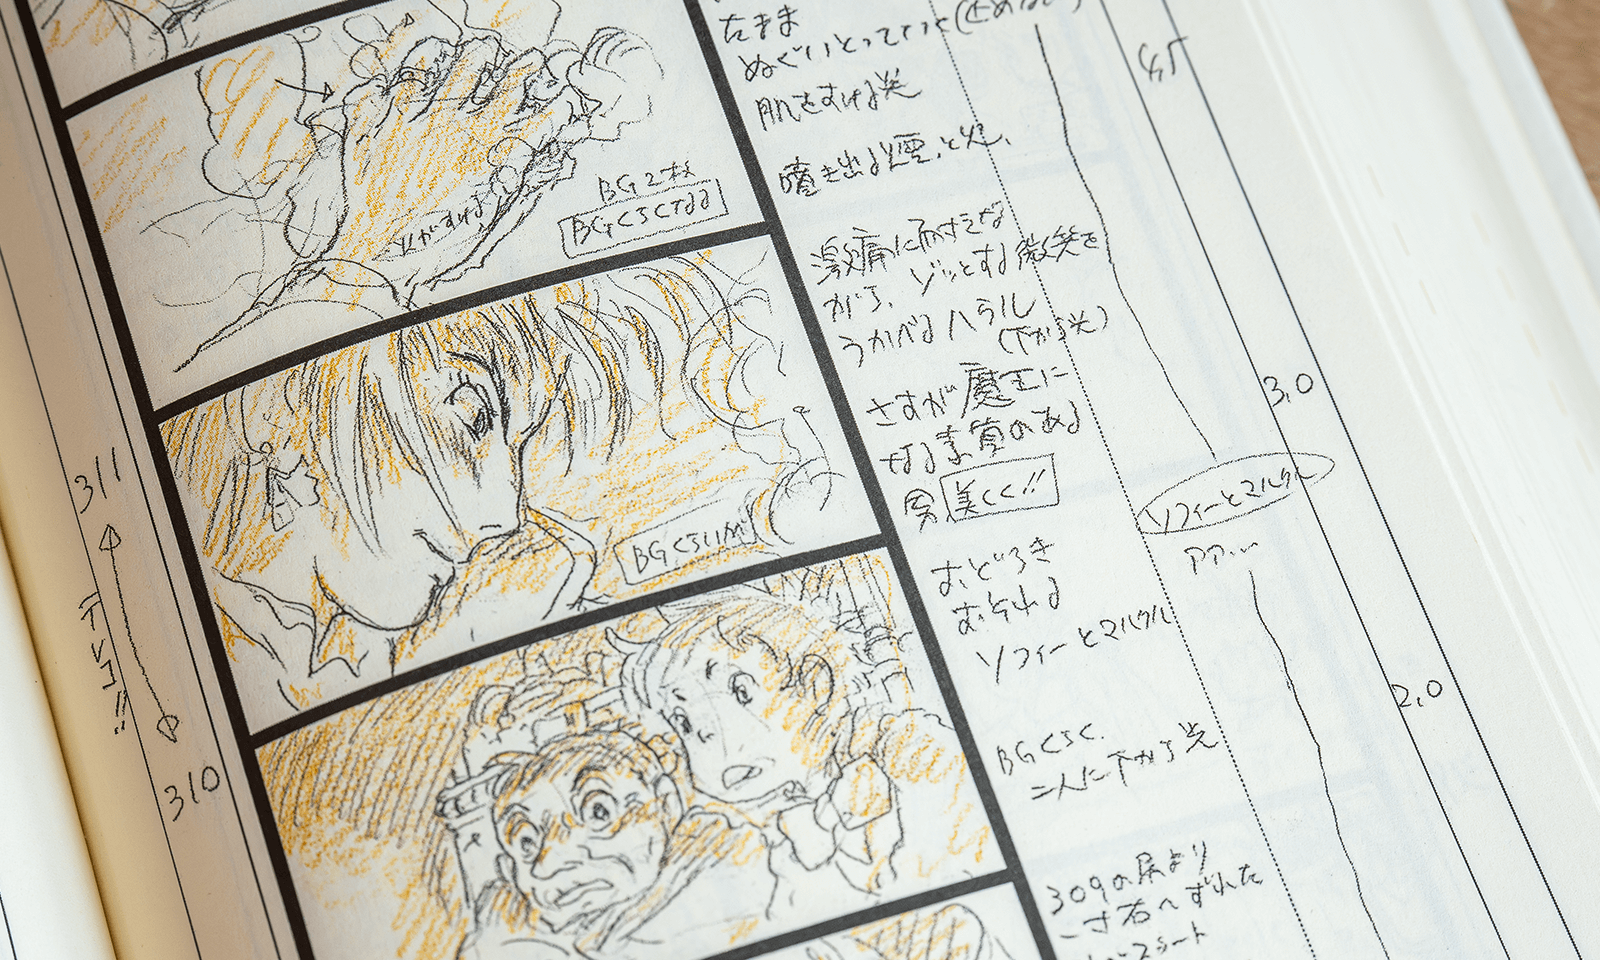 たまま
ぬぐいとってっと(止めない)
4.5
肌をすける炎
噴き出る煙と炎、
BG2枚
BGくらくなる
火がすける
激痛に耐えな
がら、ゾッとする微笑を
うかべるハウル
(下から光)
3.0
さすが魔王に
なる素質のある
男 美しく!!
BGくらいM
311
テレコ!!
310
ソフィーとマルクル
アア…
おどろき
おそれる
ソフィーとマルクル
2.0
BGくらく、
二人に下から光
309の尻より
一寸右へずれた
シート